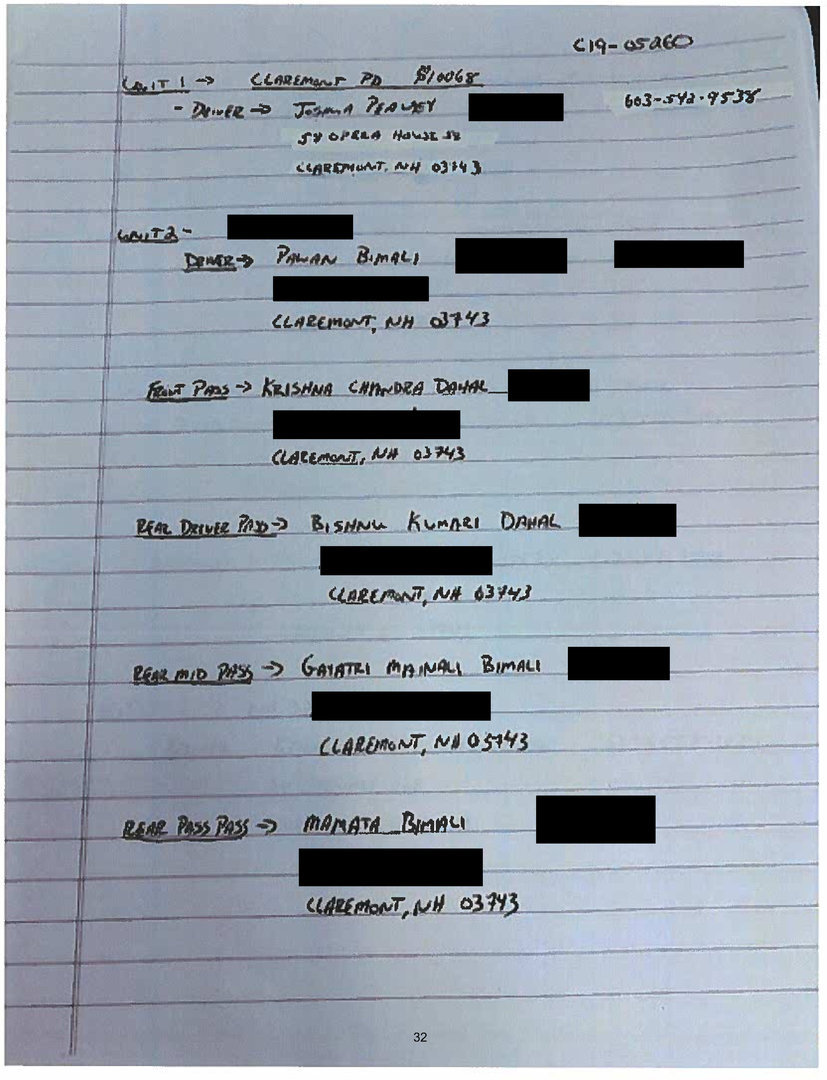 C19-05260
UNIT 1 → CLAREMONT PD #10068
- DRIVER → JOSHUA 603-542-9538
58 OPERA HOUSE SQ
CLAREMONT, NH 03743
UNIT 2 -
DRIVER → PAWAN BIMALI
CLAREMONT, NH 03743
FRONT PASS → KRISHNA CHANDRA DAHAL
CLAREMONT, NH 03743
REAR DRIVER PASS → BISHNU KUMARI DAHAL
CLAREMONT, NH 03743
REAR MID PASS → GAYATRI MAINALI BIMALI
CLAREMONT, NH 03743
REAR PASS PASS → MAMATA BIMALI
CLAREMONT, NH 03743
32